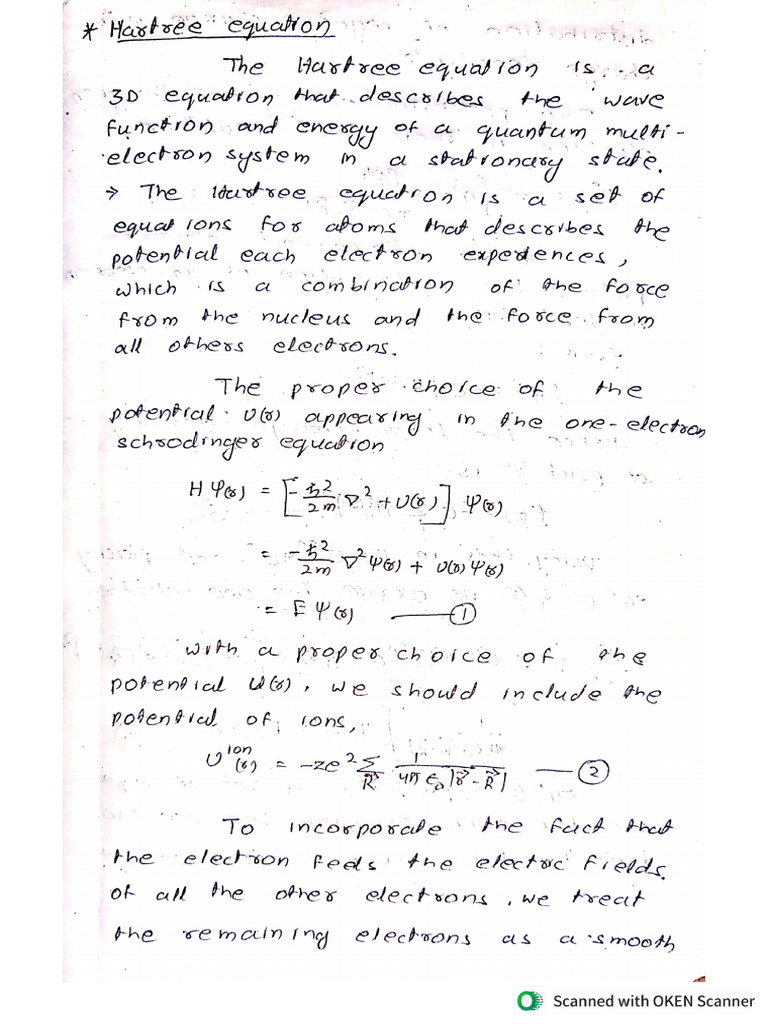 * Hartree equation
The Hartree equation is a
3D equation that describes the wave
function and energy of a quantum multi-
electron system in a stationary state.
→ The Hartree equation is a set of
equations for atoms that describes the
potential each electron experiences,
which is a combination of the force
from the nucleus and the force from
all others electrons.
The proper choice of the
potential U(r) appearing in the one-electron
schrodinger equation
H Ψ(r) = [-ℏ²/2m ∇² + U(r)] Ψ(r)
= -ℏ²/2m ∇²Ψ(r) + U(r) Ψ(r)
= E Ψ(r) —— ①
with a proper choice of the
potential U(r), we should include the
potential of ions,
U^ion(r) = -ze² Σ_R⃗ 1/4π ϵ₀ |r⃗ - R⃗| —— ②
To incorporate the fact that
the electron feels the electric fields
of all the other electrons, we treat
the remaining electrons as a smooth
Scanned with OKEN Scanner